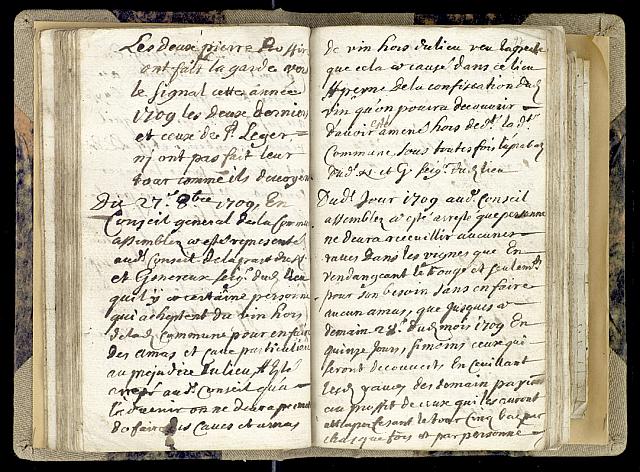 Les deux pierre Rossir
ont fait la garde pour
le signal cette année
1709 les deux dernier
et ceux de St. Leger
nj ont pas fait leur
tour comme ils devoyent
Du 27e. 8bre 1709, En
Conseil general de la Commu
assemblez a esté represente
aud. Conseil de la part du
et Genereux seigr. dud. lieu
quil y a certaine personne
qui acheptent du vin hors
de lad. Commune pour en faire
des amas et cave particulier
au prejudice du lieu, Il esté
arresté aud. Conseil qu'a
l'advenir on ne devra permettre
de faire des caves et amas
de vin hors du lieu veu la perte
que cela a causé dans ce lieu
A peyne de la confiscation dud.
vin qu'on pourra decouvrir
d'avoir esté amené hors de
Commune sous toutes fois
dud. N. et G. seigr. du lieu
Dud. Jour 1709 aud. Conseil
assemblez a esté arresté que personne
ne devra recueillir aucunes
raves dans les vignes que En
vendangeant le rouge et seulemt.
pour son besoin sans en faire
aucun amas, que jusques a
demain 28e. dud. mois 1709 En
quinze Jours, simoins ceux qui
seront decouverts En Cueillant
lesd. raves des demain payeront
au proffit de ceux qui les auront
attrapez faisant le tour Cinq baz par
chasque fois et par personne